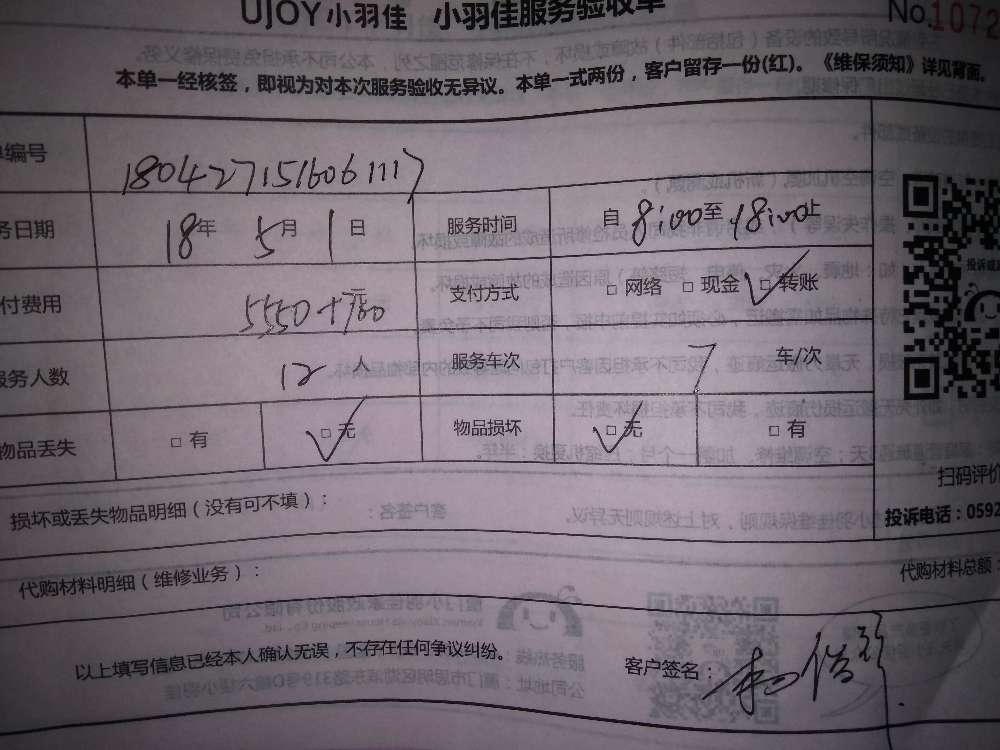 UJOY小羽佳 小羽佳服务验收单
No.1072
本单一经核签，即视为对本次服务验收无异议。本单一式两份，客户留存一份(红)。《维保须知》详见背面。
单编号 1804271516061117
务日期 18年 5月 1日 服务时间 自 8:00至 18:00止
付费用 5550+ 支付方式 □ 网络 □ 现金 □ 转账
服务人数 12 人 服务车次 7 车/次
物品丢失 □ 有 □ 无 物品损坏 □ 无 □ 有
投诉或
扫码评价
损坏或丢失物品明细（没有可不填）：
投诉电话：0592
代购材料明细（维修业务）：
代购材料总额：
以上填写信息已经本人确认无误，不存在任何争议纠纷。
客户签名：